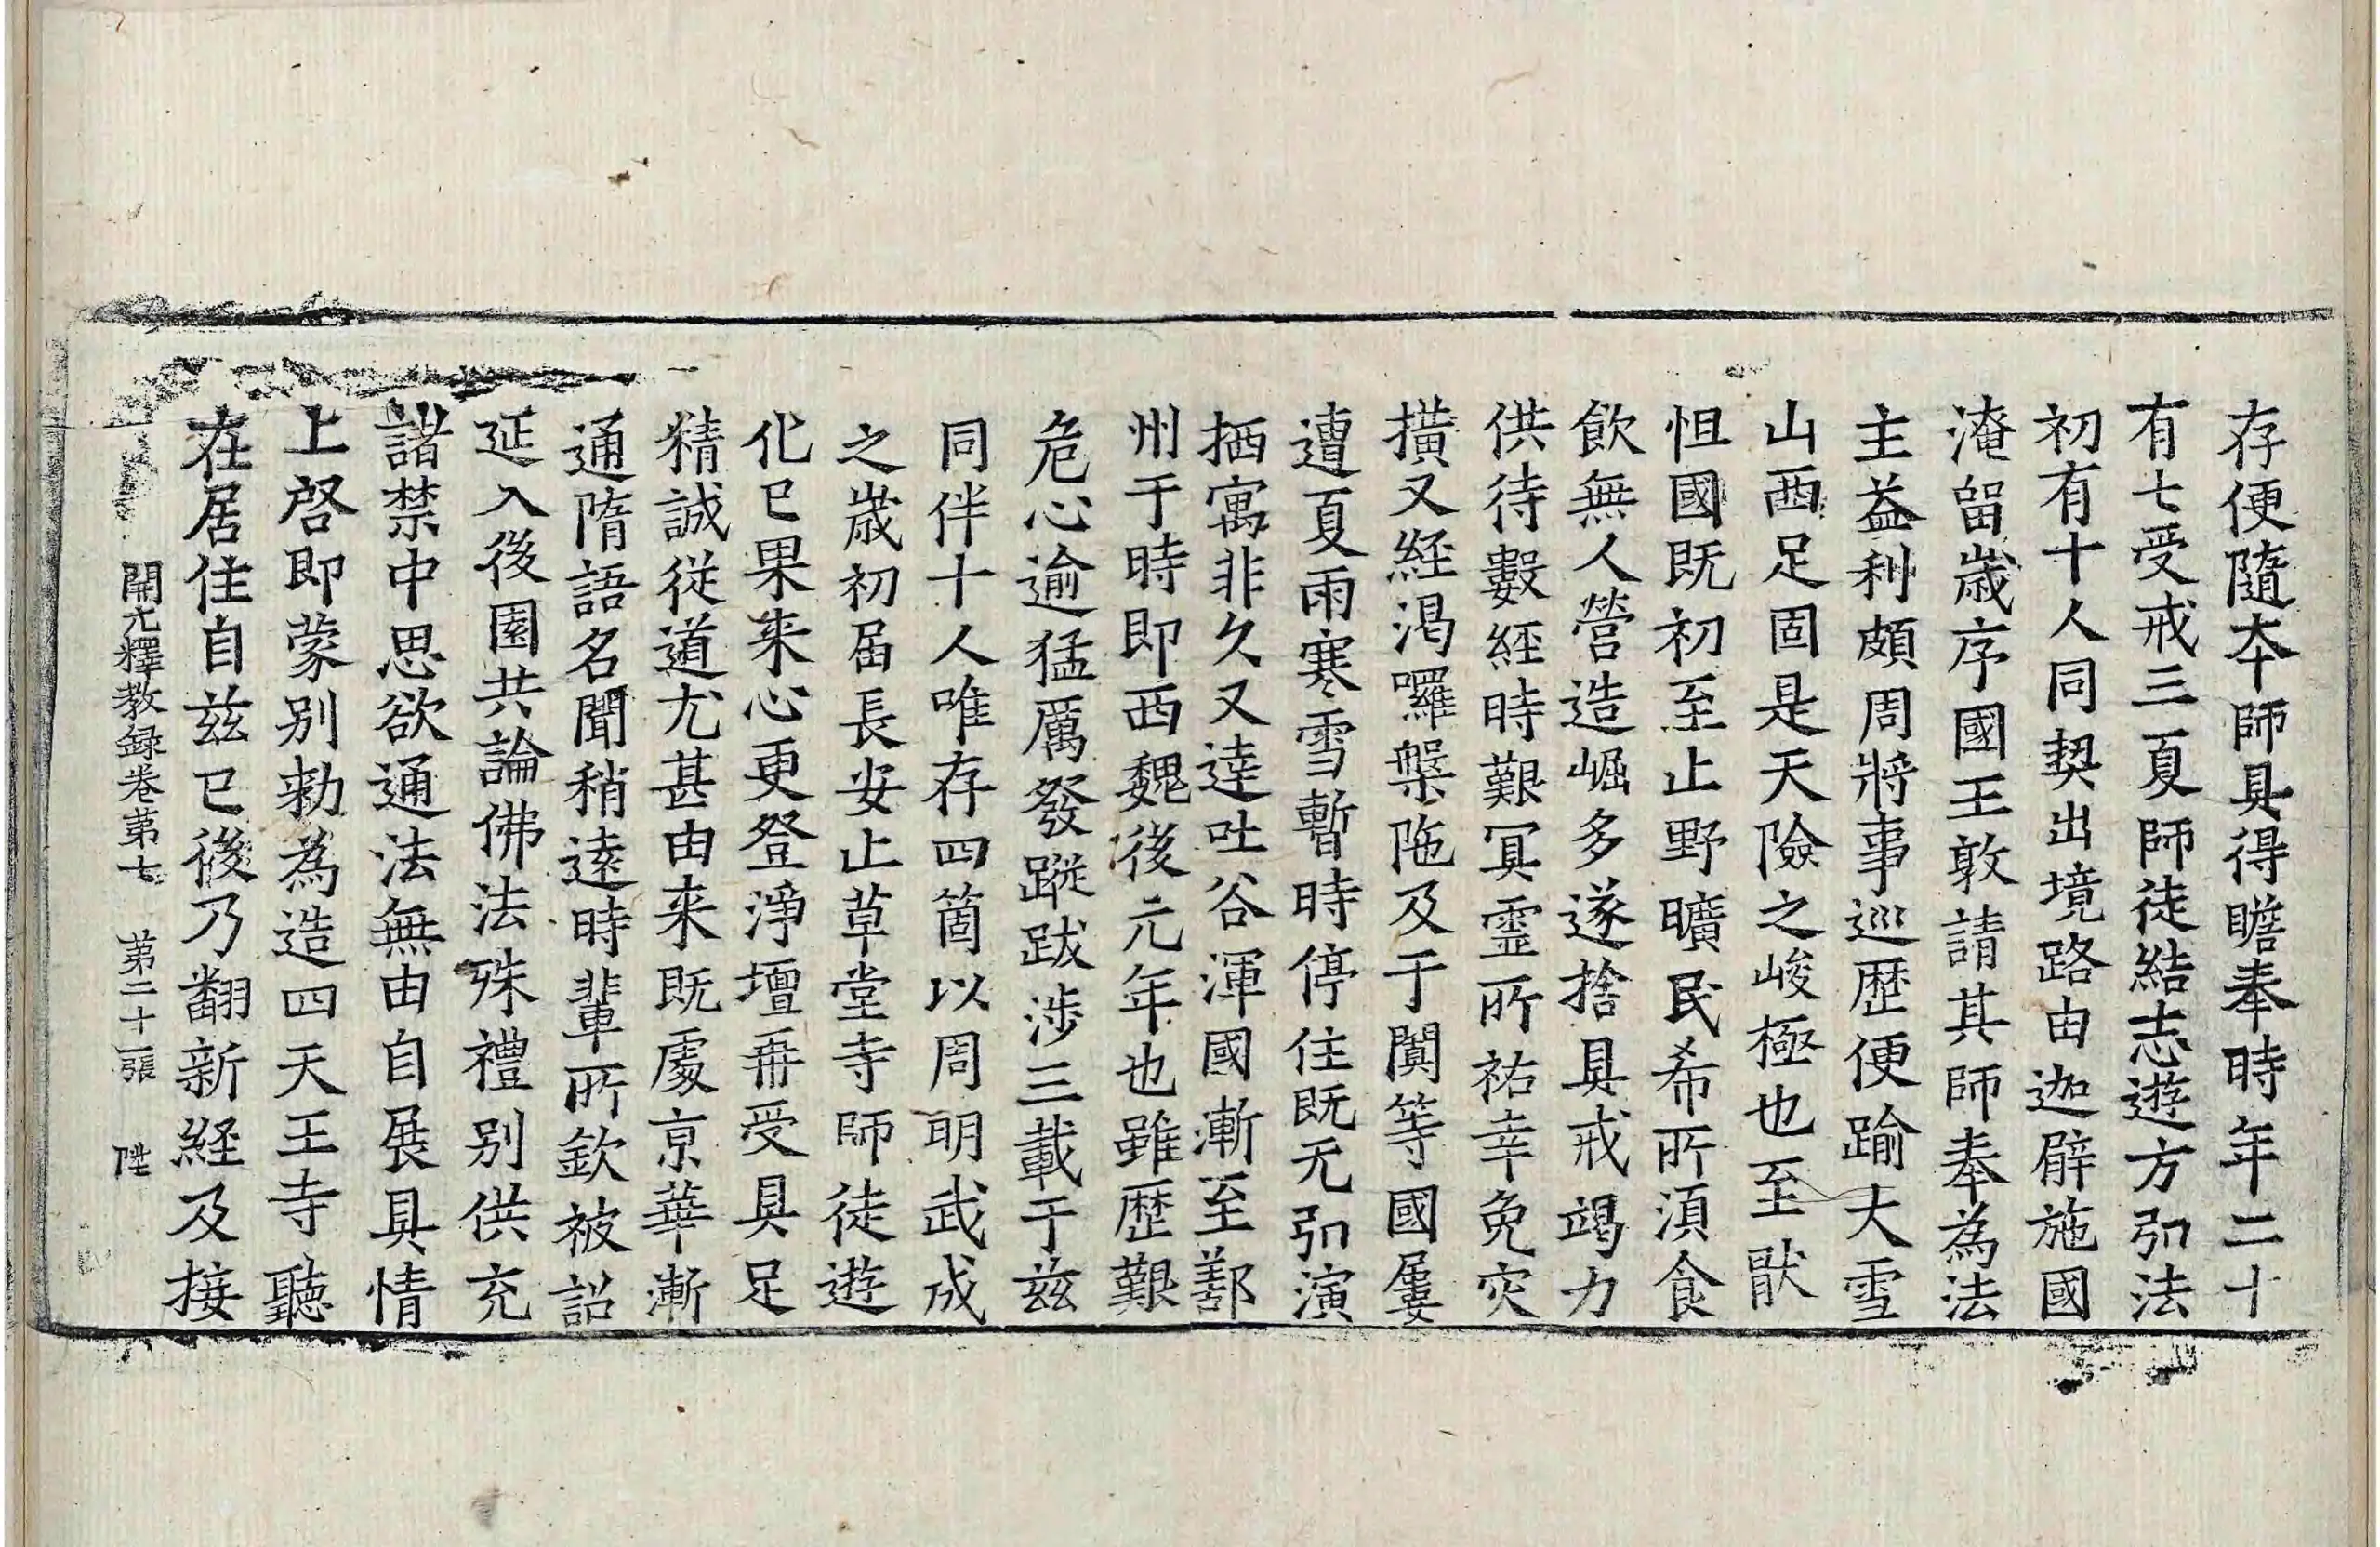 存便隨夲師具得瞻奉時年二十
有七受戒三夏師徒結志遊方弘法
初有十人同契出境路由迦臂施國
淹留歳序國王敦請其師奉為法
主益利頗周將事巡歷便踰大雪
山西足固是天險之峻極也至厭
怛國既初至止野曠民希所湏食
飲無人營造崛多遂捨具戒竭力
供待數經時艱冥霊所祐幸免灾
橫又経渴囉槃陁及于闐等國屢
遭夏雨寒雪暫時停住既无弘演
栖寓非久又逹吐谷渾國漸至鄯
州于時即西魏後元年也雖歷艱
危心逾猛厲發蹤跋涉三載于兹
同伴十人唯存四箇以周明武成
之歳初届長安止草堂寺師徒遊
化已果来心更登淨壇再受具足
精誠従道尤甚由来既處京華漸
通隋語名聞稍逺時輩所欽被詔
延入後園共論佛法殊禮別供充
諸禁中思欲通法無由自展具情
上啓即蒙別勑為造四天王寺聽
在居住自兹已後乃翻新経及接
開元釋教録卷苐七 苐二十一張 陞